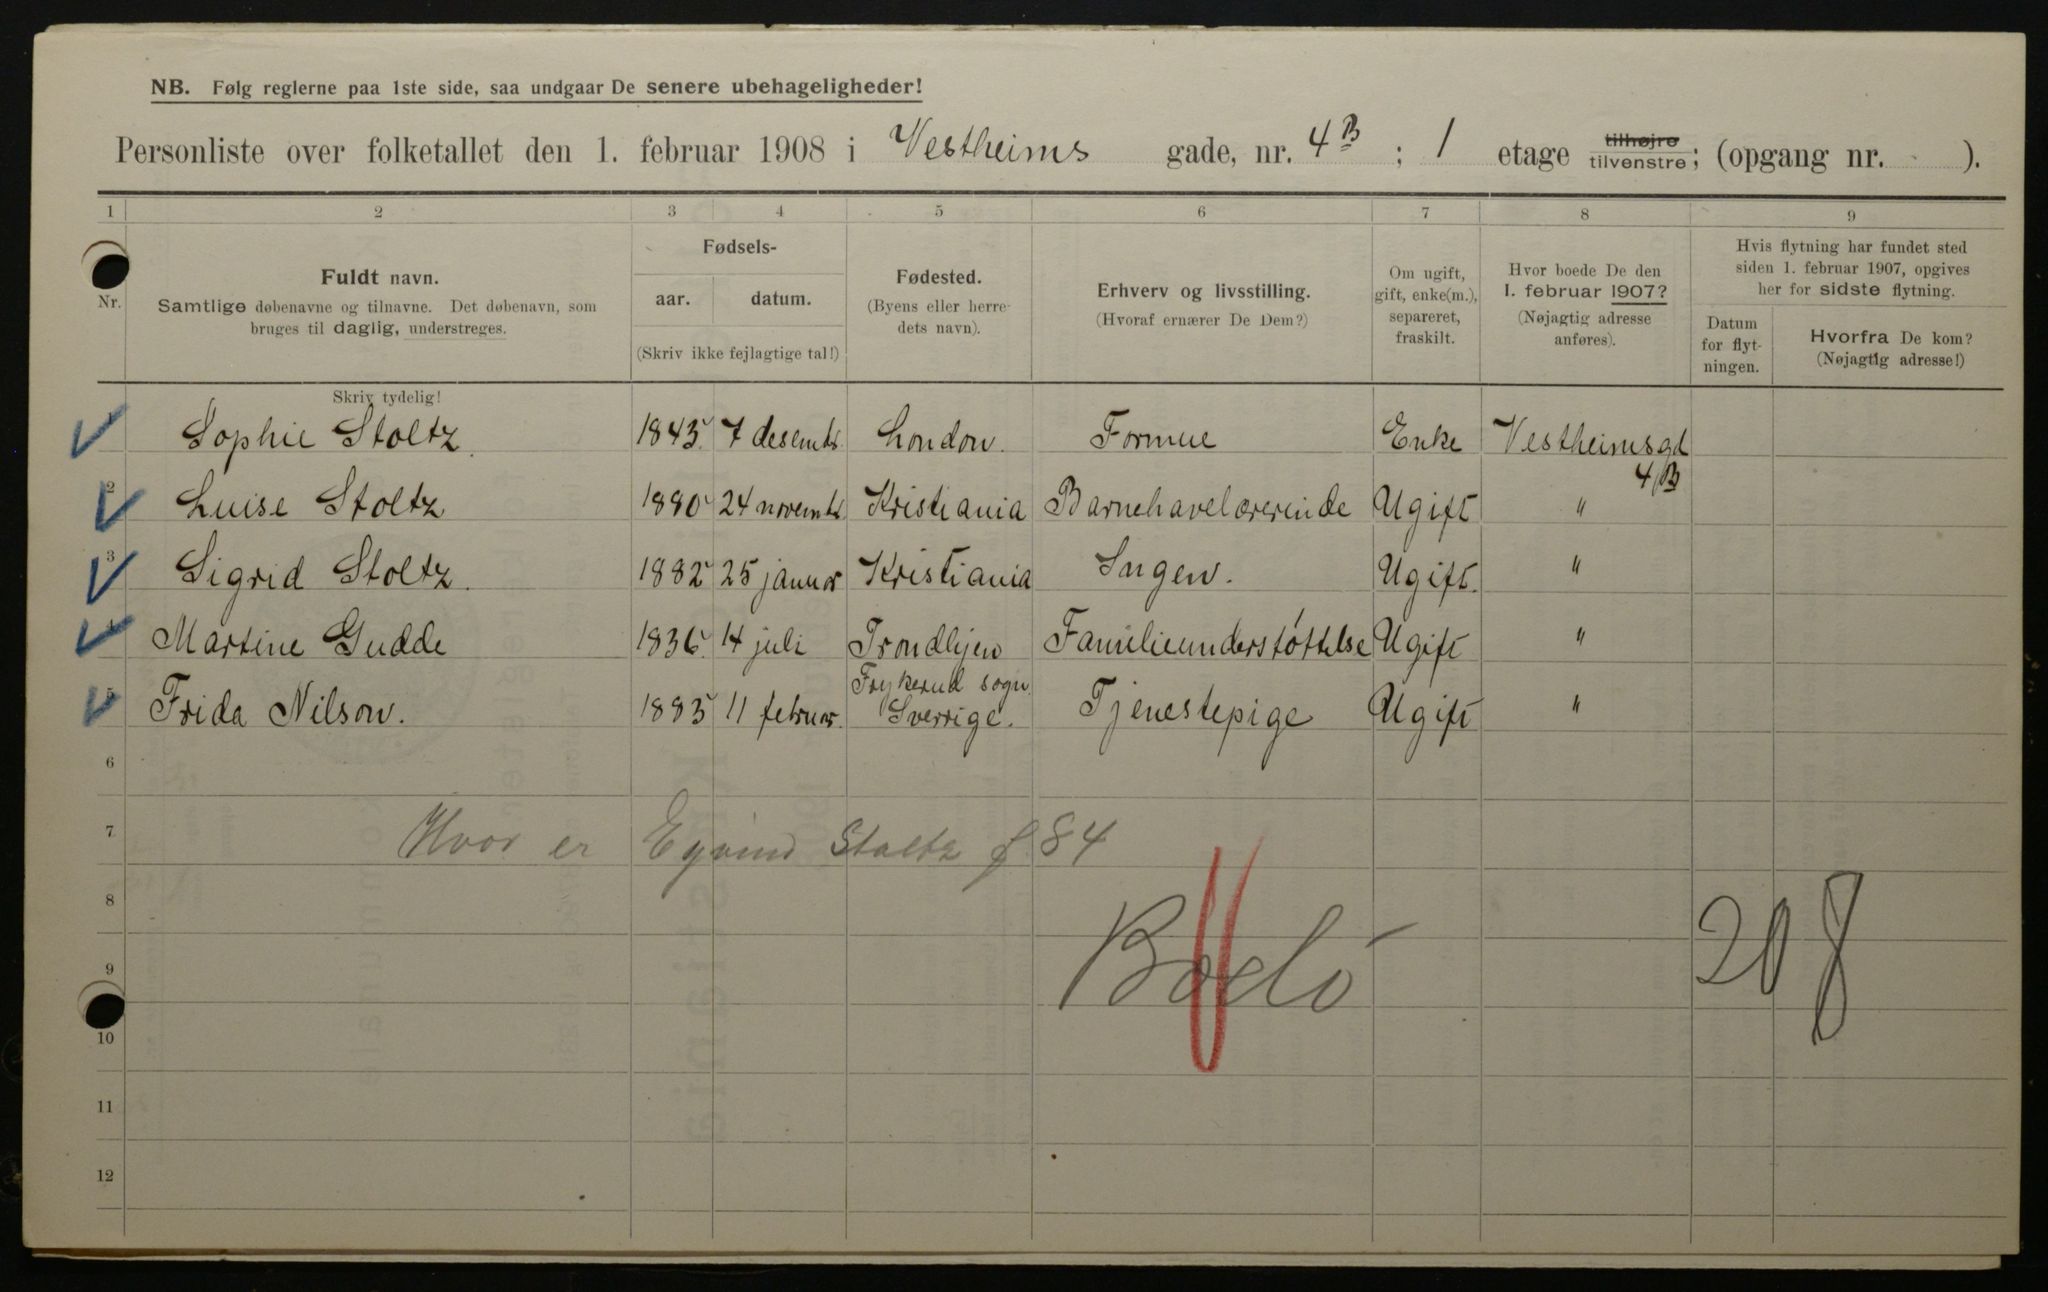 NB. Følg reglerne paa 1ste side, saa undgaar De senere ubehageligheder!
Personliste over folketallet den 1. februar 1908 i Vestheims gade, nr. 4B ; 1 etage tilhøjre tilvenstre; (opgang nr. ).
1 2 3 4 5 6 7 8 9
Nr.
Fuldt navn.
Samtlige døbenavne og tilnavne. Det døbenavn, som
bruges til daglig, understreges.
Fødsels-
aar. datum.
(Skriv ikke fejlagtige tal!)
Fødested.
(Byens eller herre-
dets navn).
Erhverv og livsstilling.
(Hvoraf ernærer De Dem?)
Om ugift,
gift, enke(m.),
separeret,
fraskilt.
Hvor boede De den
1. februar 1907?
(Nøjagtig adresse
anføres).
Hvis flytning har fundet sted
siden 1. februar 1907, opgives
her for sidste flytning.
Datum
for flyt-
ningen.
Hvorfra De kom?
(Nøjagtig adresse!)
Skriv tydelig!
1 Sophie Stoltz. 1845. 7 desembr. London. Formue Enke Vestheimsgd
4B
2 Luise Stoltz 1880 24 novembr. Kristiania Barnehavelærerinde Ugift "
3 Sigrid Stoltz. 1882 25 januar Kristiania Ingen. Ugift. "
4 Martine Gudde 1836. 14 juli Trondhjem Familieunderstøttelse Ugift "
Frykerud sogn.
5 Frida Nilson. 1883 11 februar. Sverrige. Tjenestepige Ugift "
6
7 Hvor er Eyvind Stoltz f 84
8
Bodó 208
9
10
11
12